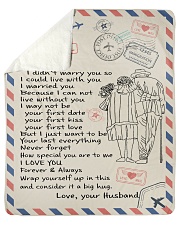 I didn't marry you so
I could live with you
I married you
Because I can not
live without you
I may not be
your first date
your first kiss
your first love
But I just want to be
Your last everything
Never forget
How special you are to me
I LOVE YOU
Forever & Always
Wrap yourself up in this
and consider it a big hug.
Love, your Husband